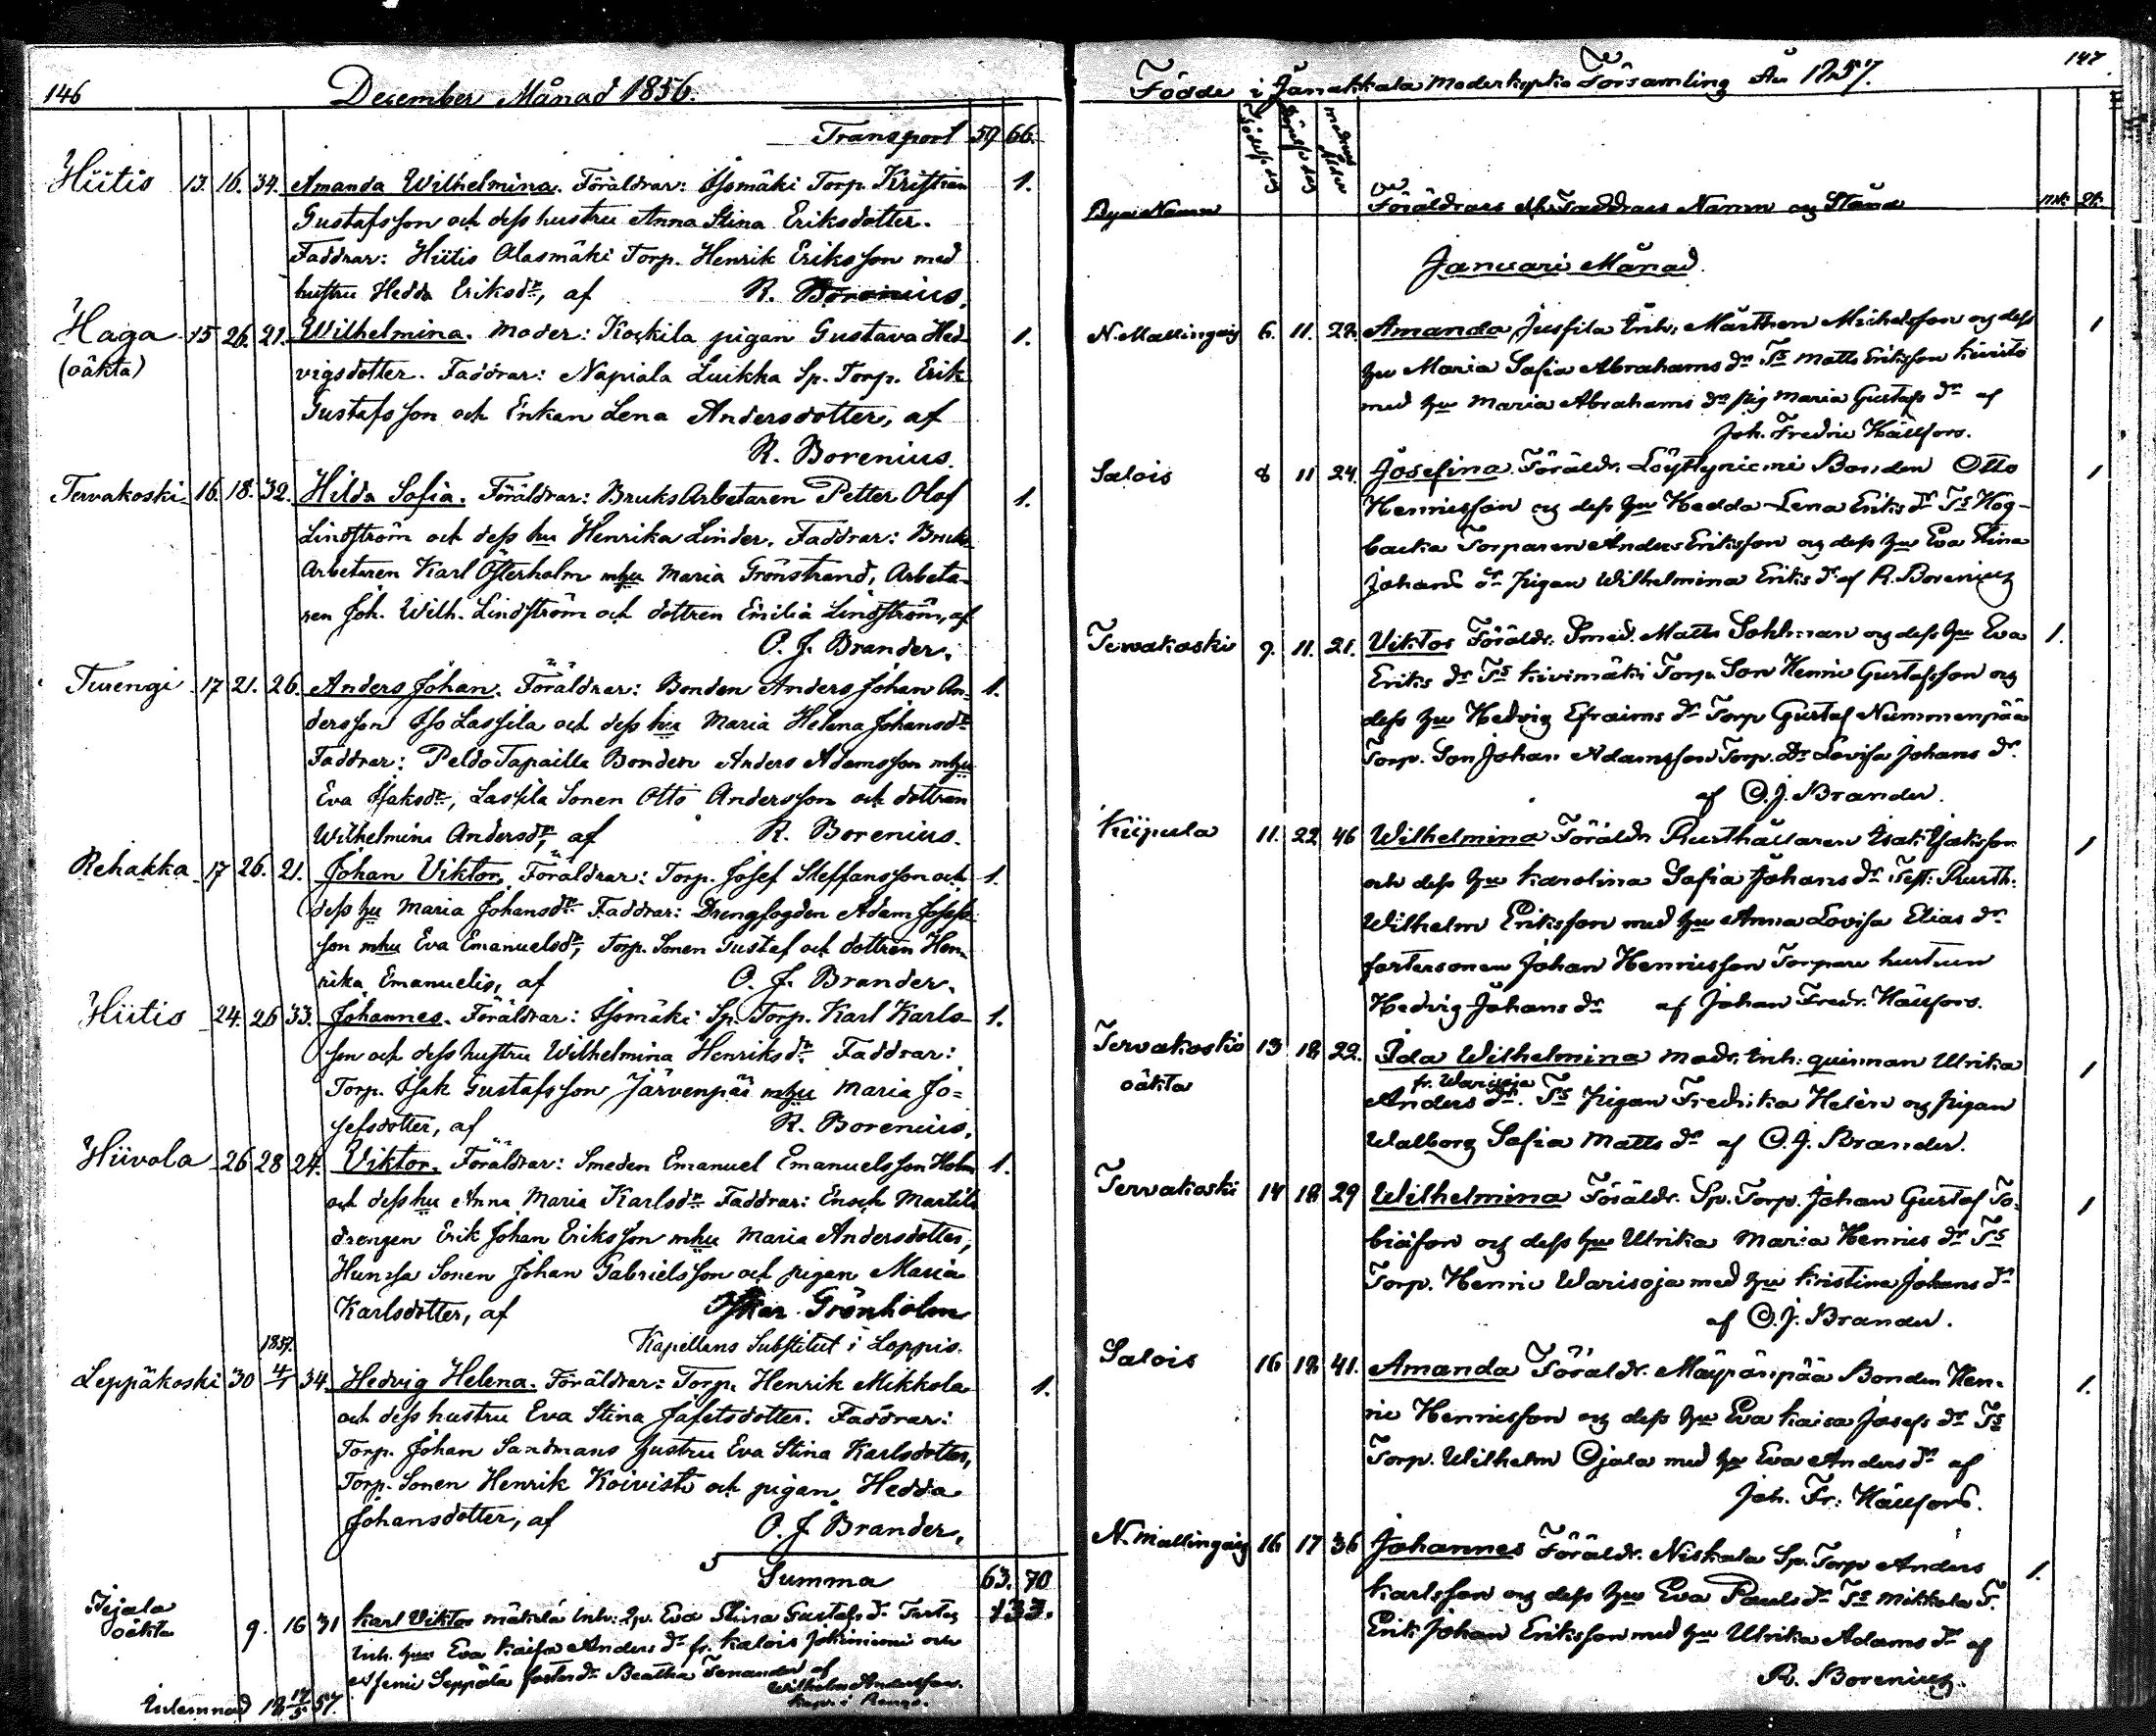 146
December Månad 1856.
Transport 59 66.
Hiitis 13. 16. 34. Amanda Wilhelmina. Föräldrar: Isomäki Torp. Kristian 1.
Gustafsson och dess hustru Anna Stina Eriksdotter.
Faddrar: Hiitis Alasmäki Torp. Henrik Eriksson med
hustru Hedda Eriksdr, af R. Borenius.
Haga 15 26. 21. Wilhelmina. Moder: Kockila pigan Gustava Hed- 1.
(oäkta) vigsdotter. Faddrar: Napiala Luikka Sp. Torp. Erik
Gustafsson och Enkan Lena Andersdotter, af
R. Borenius.
Tervakoski 16. 18. 32. Hilda Sofia. Föräldrar: BruksArbetaren Petter Olof 1.
Lindström och dess hu Henrika Linder. Faddrar: Bruks-
Arbetaren Karl Österholm mhu Maria Grönstrand, Arbeta-
ren Joh. Wilh. Lindström och dottren Emilia Lindström, af
O. J. Brander.
Turengi 17 21. 26. Anders Johan. Föräldrar: Bonden Anders Johan An- 1.
dersson Iso Lassila och dess hu Maria Helena Johansdr
Faddrar: PeldoTapailla Bonden Anders Adamsson mhu
Eva Isaksdr, Lassila Sonen Otto Andersson och dottren
Wilhelmina Andersdr, af R. Borenius.
Rehakka 17 26. 21. Johan Viktor. Föräldrar: Torp. Josef Steffansson och 1.
dess hu Maria Johansdr Faddrar: Drengfogden Adam Josefs-
son mhu Eva Emanuelsdr, Torp. Sonen Gustaf och dottren Hen-
rika Emanuelis, af O. J. Brander.
Hiitis 24. 26 33. Johannes. Föräldrar: Isomäki Sp. Torp. Karl Karls- 1.
son och dess hustru Wilhelmina Henriksdr Faddrar:
Torp. Isak Gustafsson Järvenpää mhu Maria Jo=
sefsdotter, af R. Borenius.
Hiivola 26 28 24. Viktor. Föräldrar: Smeden Emanuel Emanuelsson Holm 1.
och dess hu Anna Maria Karlsdr Faddrar: Enoch Martils
drengen Erik Johan Eriksson mhu Maria Andersdotter,
Hunsa Sonen Johan Gabrielsson och pigan Maria
Karlsdotter, af Oskar Grönholm
Kapellans Substitut i Loppis.
1857.
Leppäkoski 30 4/1 34. Hedvig Helena. Föräldrar: Torp. Henrik Mikkola 1.
och dess hustru Eva Stina Jafetsdotter. Faddrar:
Torp. Johan Sandmans hustru Eva Stina Karlsdotter,
Torp. Sonen Henrik Koivisto och pigan Hedda
Johansdotter, af O. J. Brander.
Summa 63. 70
133.
oäkta 9. 16 31 Karl Viktor Inh: Eva Stina Gustafs dr
Inh. Eva Kaisa Anders dr fr. och
Seppälä Beatha af
Wilhelm Andersson
Kapn i
Inlemnad 18 17/5 57.
147.
Födde i Janakkala Moderkyrko Församling År 1857.
Födelsedag Döpelsedag Modrens Ålder
Byns Namn Föräldrars och Faddrars Namn og Stånd mk: qk:
Januari Månad.
N. Mallingais 6. 11. 22. Amanda Jussila Inh. Mårthen Michelsson og dess 1
hu Maria Sofia Abrahams dr Ts Matts Eriksson Kivistö
med hu Maria Abrahams dr pig Maria Gustafs dr af
Joh. Fredric Hällfors.
Salois 8 11 24. Josefina Föräldr. Löyttyniemi Bonden Otto 1
Henricsson og dess hu Hedda Lena Eriks dr Ts Hög-
backa Torparen Anders Eriksson og dess hu Eva Stina
Johans dr Pigan Wilhelmina Eriks dr af R. Borenius
Tervakoski 9. 11. 21. Viktor Föräldr. Smed. Matts Sohlman og dess hu Eva 1.
Eriks dr Ts Kivimäki Torp. Son Henric Gustafsson og
dess hu Hedvig Efraims dr Torp Gustaf Nummenpää
Torp. Son Johan Adamsson Torp. Dr Lovisa Johans dr
af O. J. Brander.
Kiipula 11. 22 46 Wilhelmina Föräldr. Rusthållaren Isak Isaksson 1
och dess hu Karolina Sofia Johans dr Test: Rusth:
Wilhelm Eriksson med hu Anna Lovisa Elias dr
fostersonen Johan Henricsson Torpare hustrun
Hedvig Johans dr af Johan Fredr. Hällfors.
Tervakoski 13 18 22. Ida Wilhelmina Modr. Inh: quinnan Ulrika 1
fr. Warisoja
oäkta Anders dr. Ts Pigan Fredrika Helén og pigan
Walborg Sofia Matts dr af O. J. Brander.
Tervakoski 14 18 29 Wilhelmina Föräldr. Sp. Torp. Johan Gustaf To- 1
biasson og dess hu Ulrika Maria Henrics dr Ts
Torp. Henric Warisoja med hu Kristina Johans dr
af O. J. Brander.
Salois 16 18 41. Amanda Föräldr. Mäyränpää Bonden Hen- 1.
ric Henricsson og dess hu Eva Kaisa Josefs dr Ts
Torp. Wilhelm Ojala med hu Eva Anders dr af
Joh. Fr: Hällfors.
N. Mallingais 16 17 36 Johannes Föräldr. Niskala Sp. Torp Anders 1.
Karlsson og dess hu Eva Pauls dr Ts Mikkola T.
Erik Johan Eriksson med hu Ulrika Adams dr af
R. Borenius.